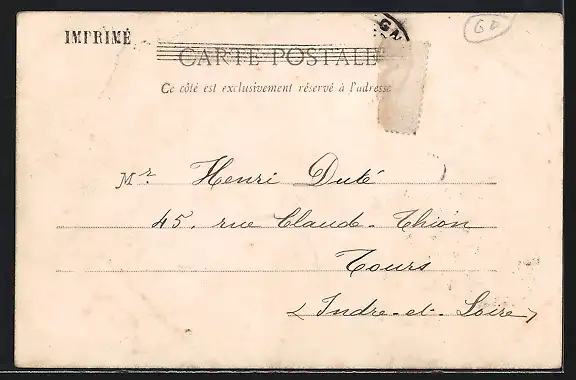 IMPRIMÉ
GA
60
CARTE POSTALE
Ce côté est exclusivement réservé à l'adresse
Mr. Henri Duté
45, rue Claude-Thion
Tours
(Indre-et-Loire)